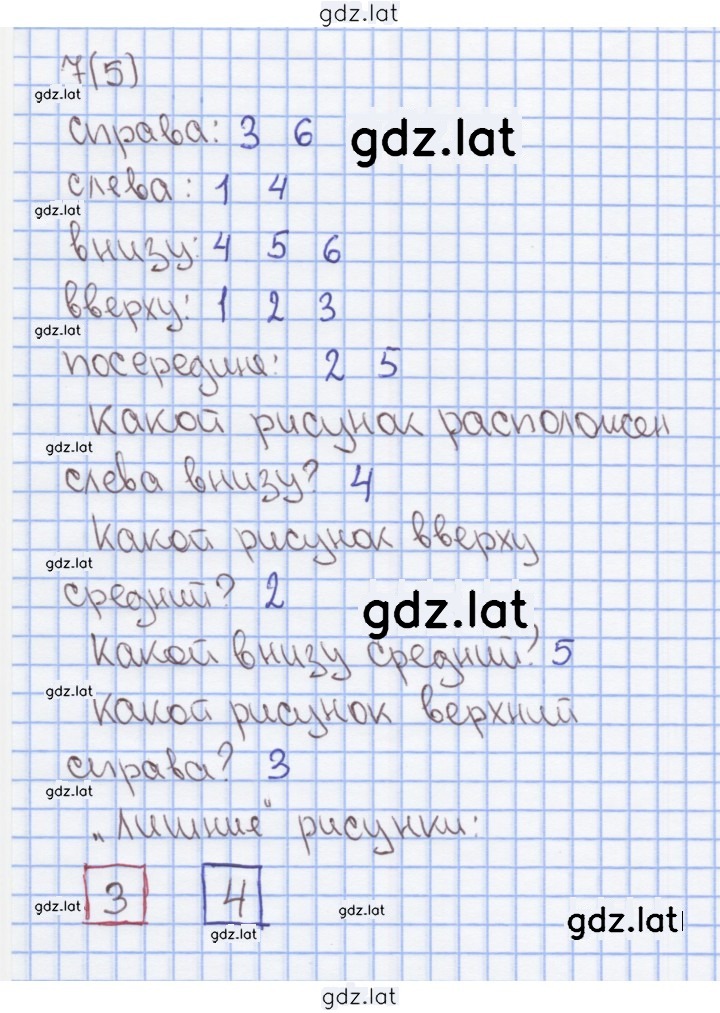 gdz.lat
7(5)
gdz.lat
справа: 3 6
gdz.lat
слева: 1 4
gdz.lat
внизу: 4 5 6
вверху: 1 2 3
gdz.lat
посередине: 2 5
Какой рисунок расположен
gdz.lat
слева внизу? 4
Какой рисунок вверху
gdz.lat
средний? 2
gdz.lat
Какой внизу средний? 5
gdz.lat
Какой рисунок верхний
справа? 3
gdz.lat
„Лишние" рисунки:
gdz.lat
3 4
gdz.lat
gdz.lat
gdz.lat
gdz.lat